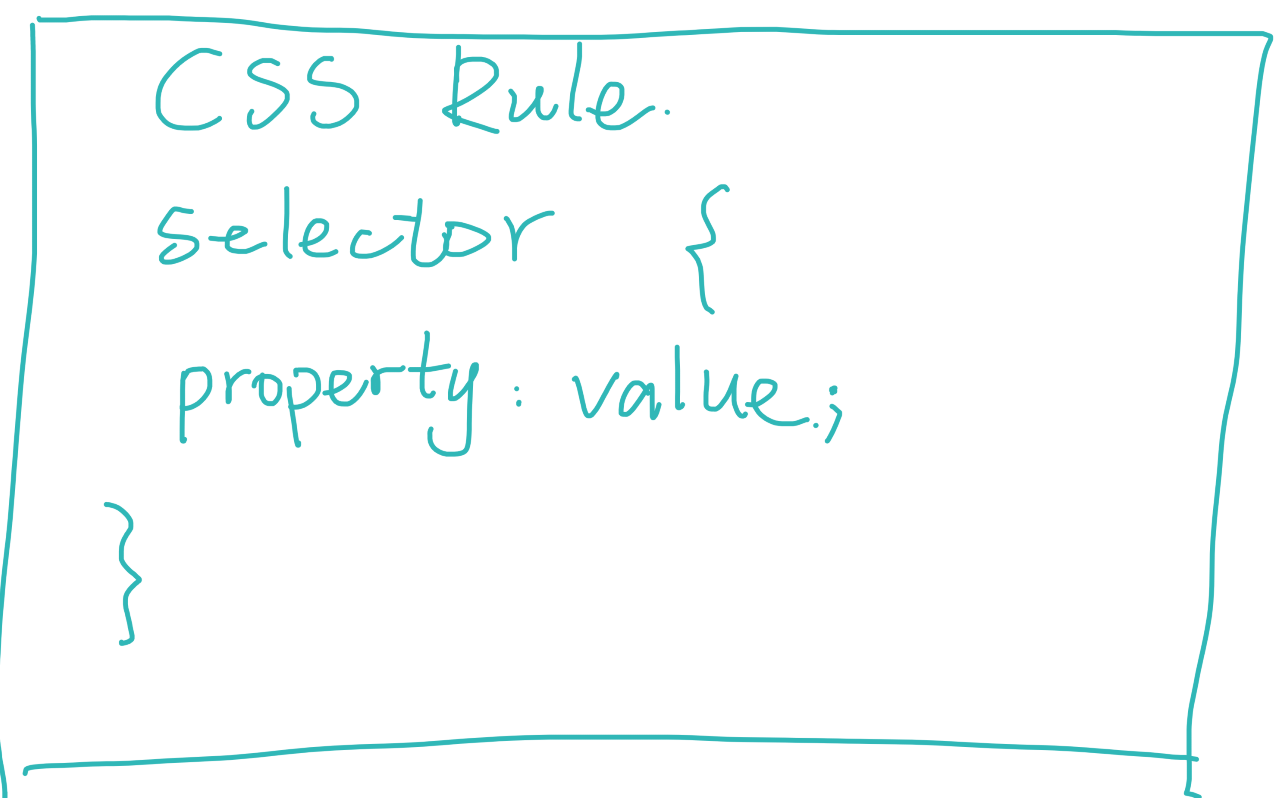 CSS Rule.
selector {
property: value.;
}